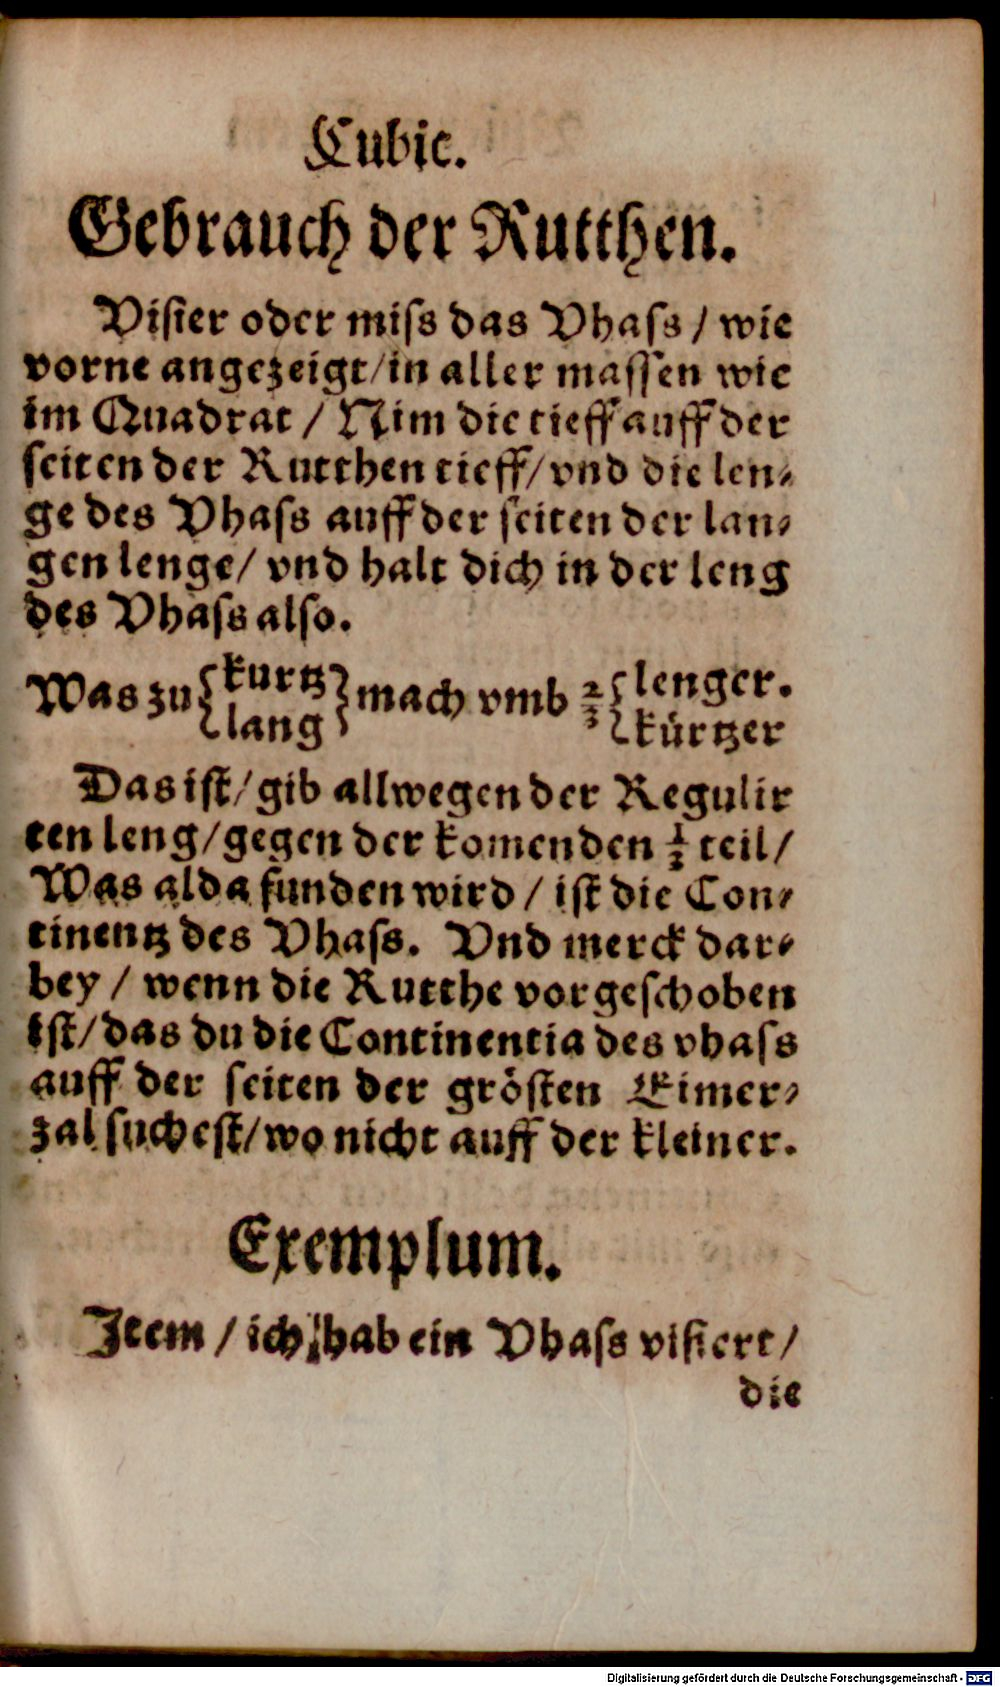 Cubic.
Gebrauch der Rutthen.
Visier oder miſs das Vhaſs / wie
vorne angezeigt / in aller maſſen wie
im Quadrat / Nim die tieff auff der
ſeiten der Rutthen tieff / vnd die len⸗
ge des Vhaſs auff der ſeiten der lan⸗
gen lenge / vnd halt dich in der leng
des Vhaſs alſo.
Was zu { kurtz } mach vmb 2/3 { lenger.
{ lang } { kürtzer
Das iſt / gib allwegen der Regulir
ten leng / gegen der komenden 1/3 teil /
Was alda funden wird / iſt die Con⸗
tinentz des Vhaſs. Vnd merck dar⸗
bey / wenn die Rutthe vorgeſchoben
iſt / das du die Continentia des vhaſs
auff der ſeiten der gröſten Eimer⸗
zal ſucheſt / wo nicht auff der kleiner.
Exemplum.
Item / ich hab ein Vhaſs viſiert /
die
Digitalisierung gefördert durch die Deutsche Forschungsgemeinschaft - DFG